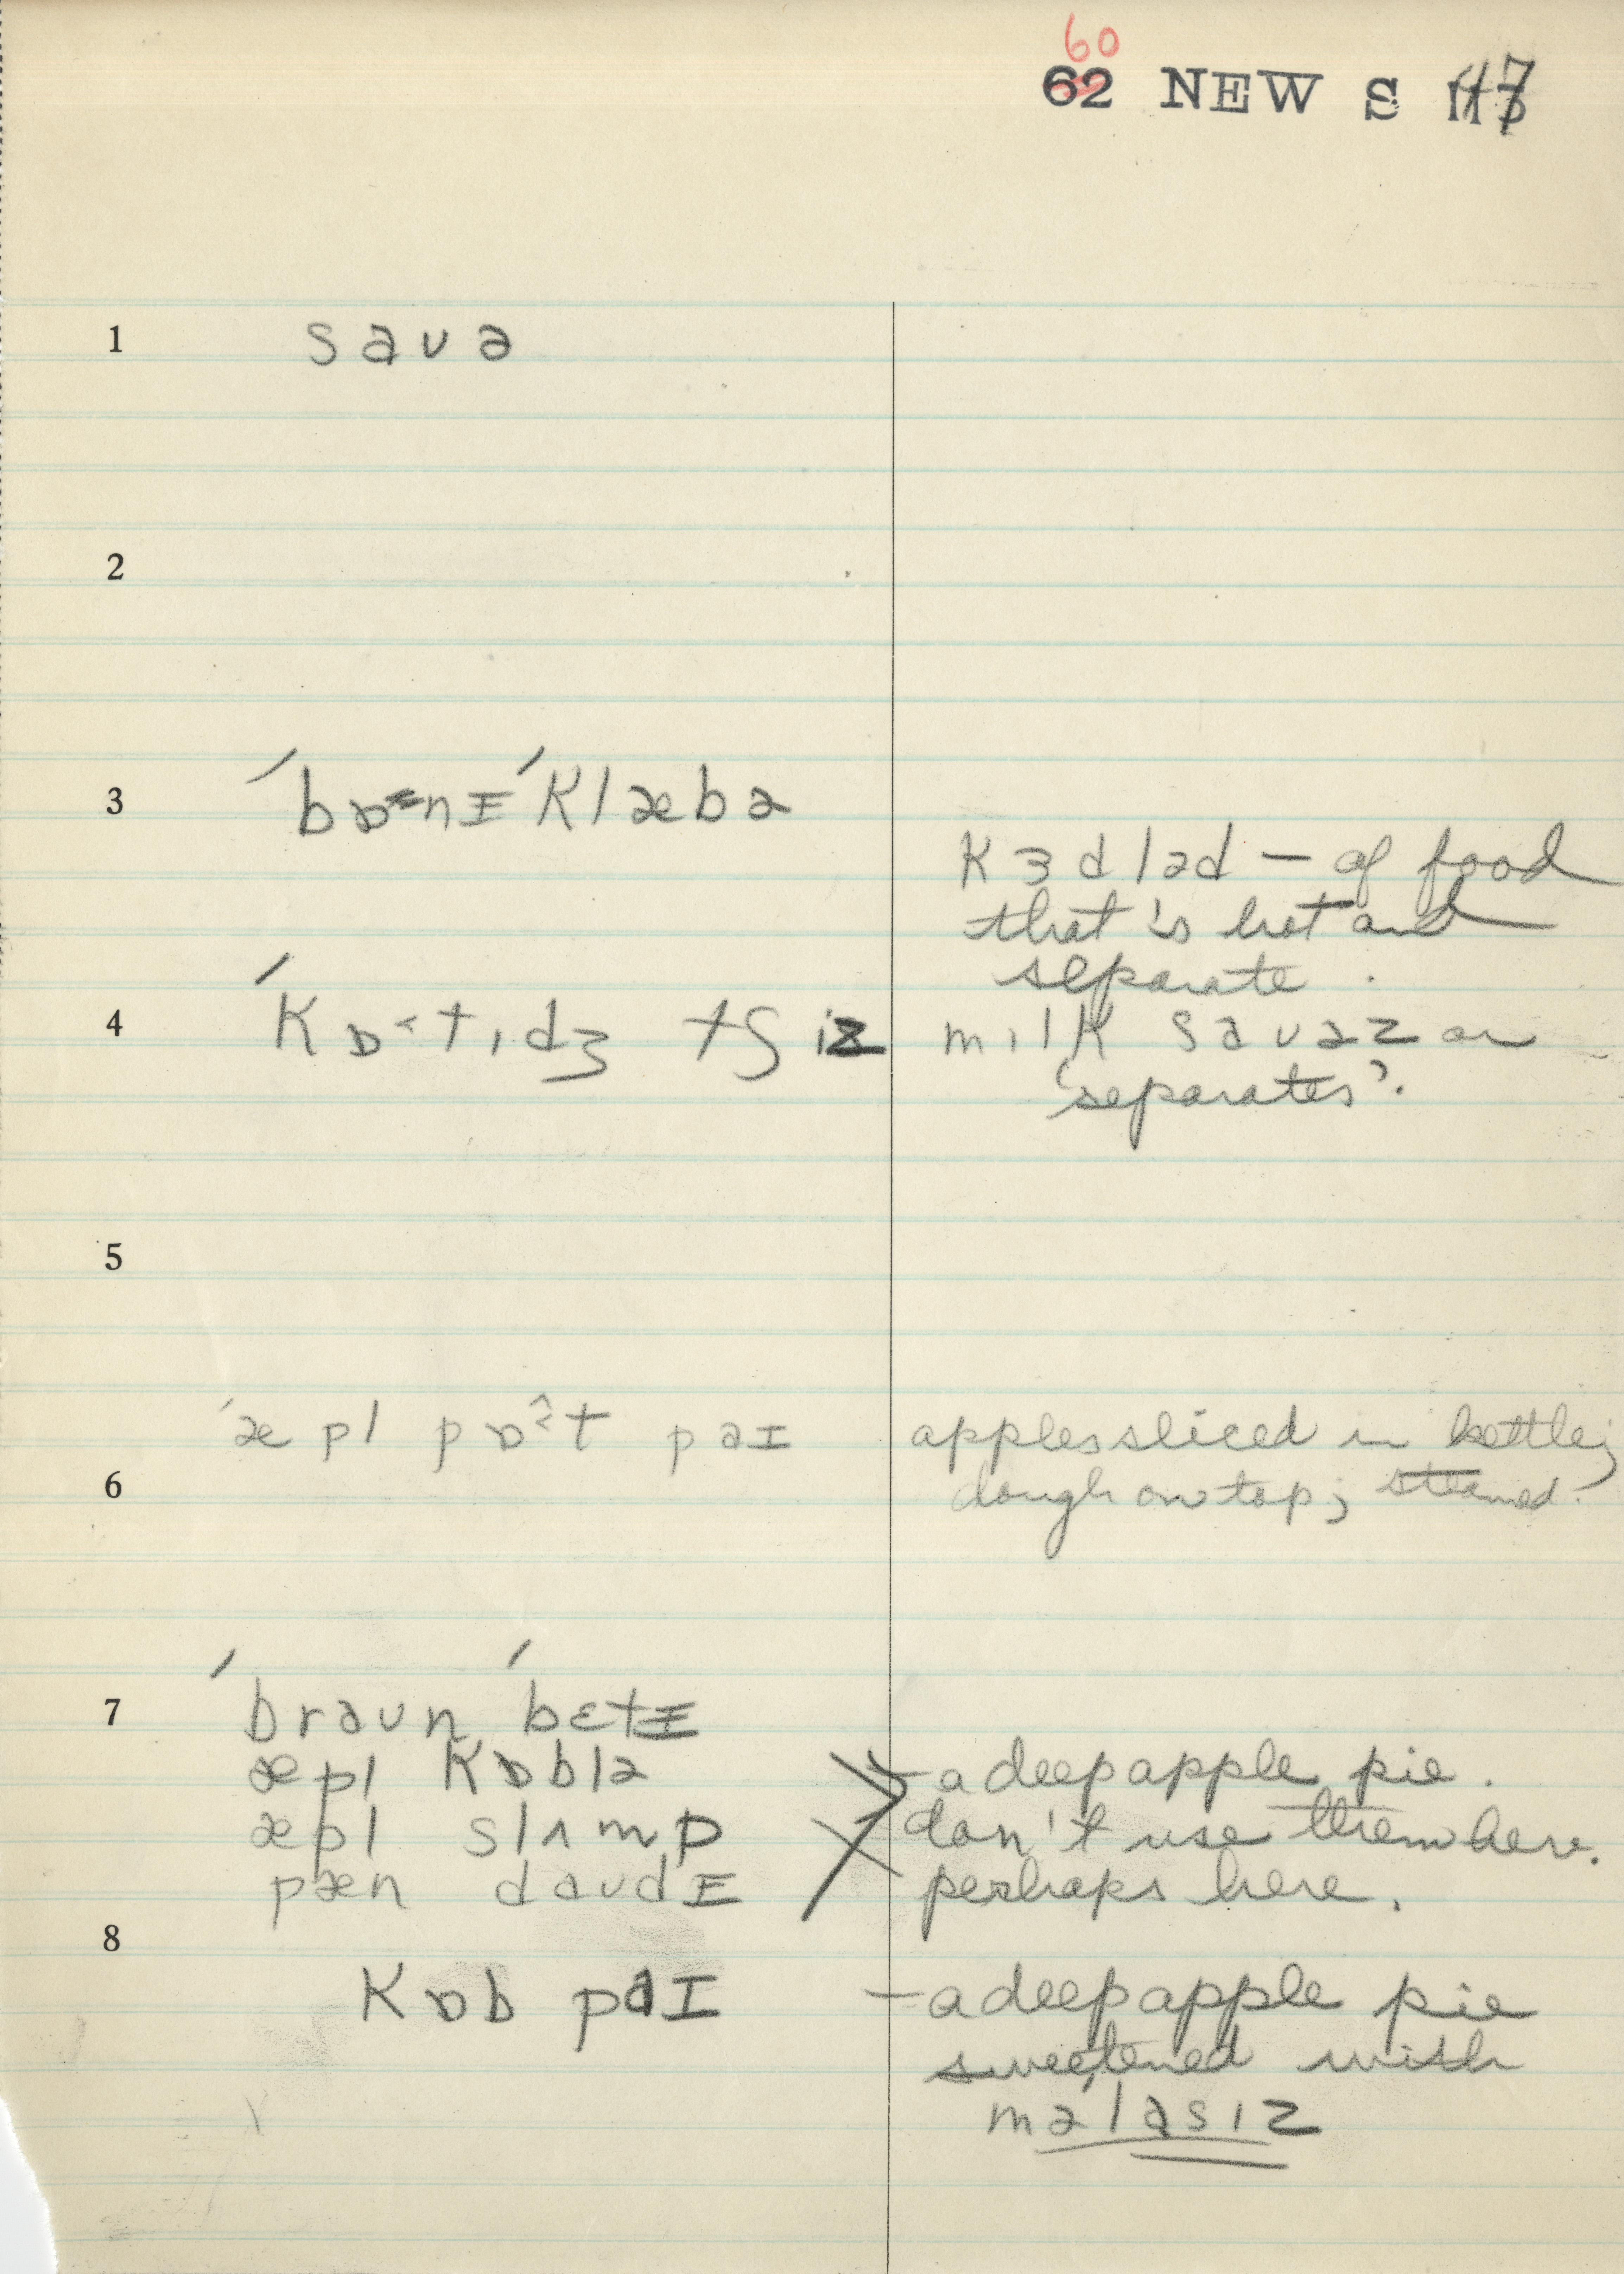 60
62 NEW S 117
1 saʊə
2
3 ˈbɒnɪˈklæbə
kɜdləd — of food
that is hot and
separate.
4 ˈkɒ˂tɪdʒ tʃiz mɪlk saʊəz or
'separates'.
5
ˈæpl pɒ˂t paɪ apples sliced in kettle;
6 dough on top; steamed.
7 ˈbraʊn ˈbɛtɪ
æpl kɒblə — a deep apple pie.
æpl slʌmp don't use them here.
pæn daʊdɪ perhaps here.
8
kɒb paɪ — a deep apple pie
sweetened with
məˈlasɪz